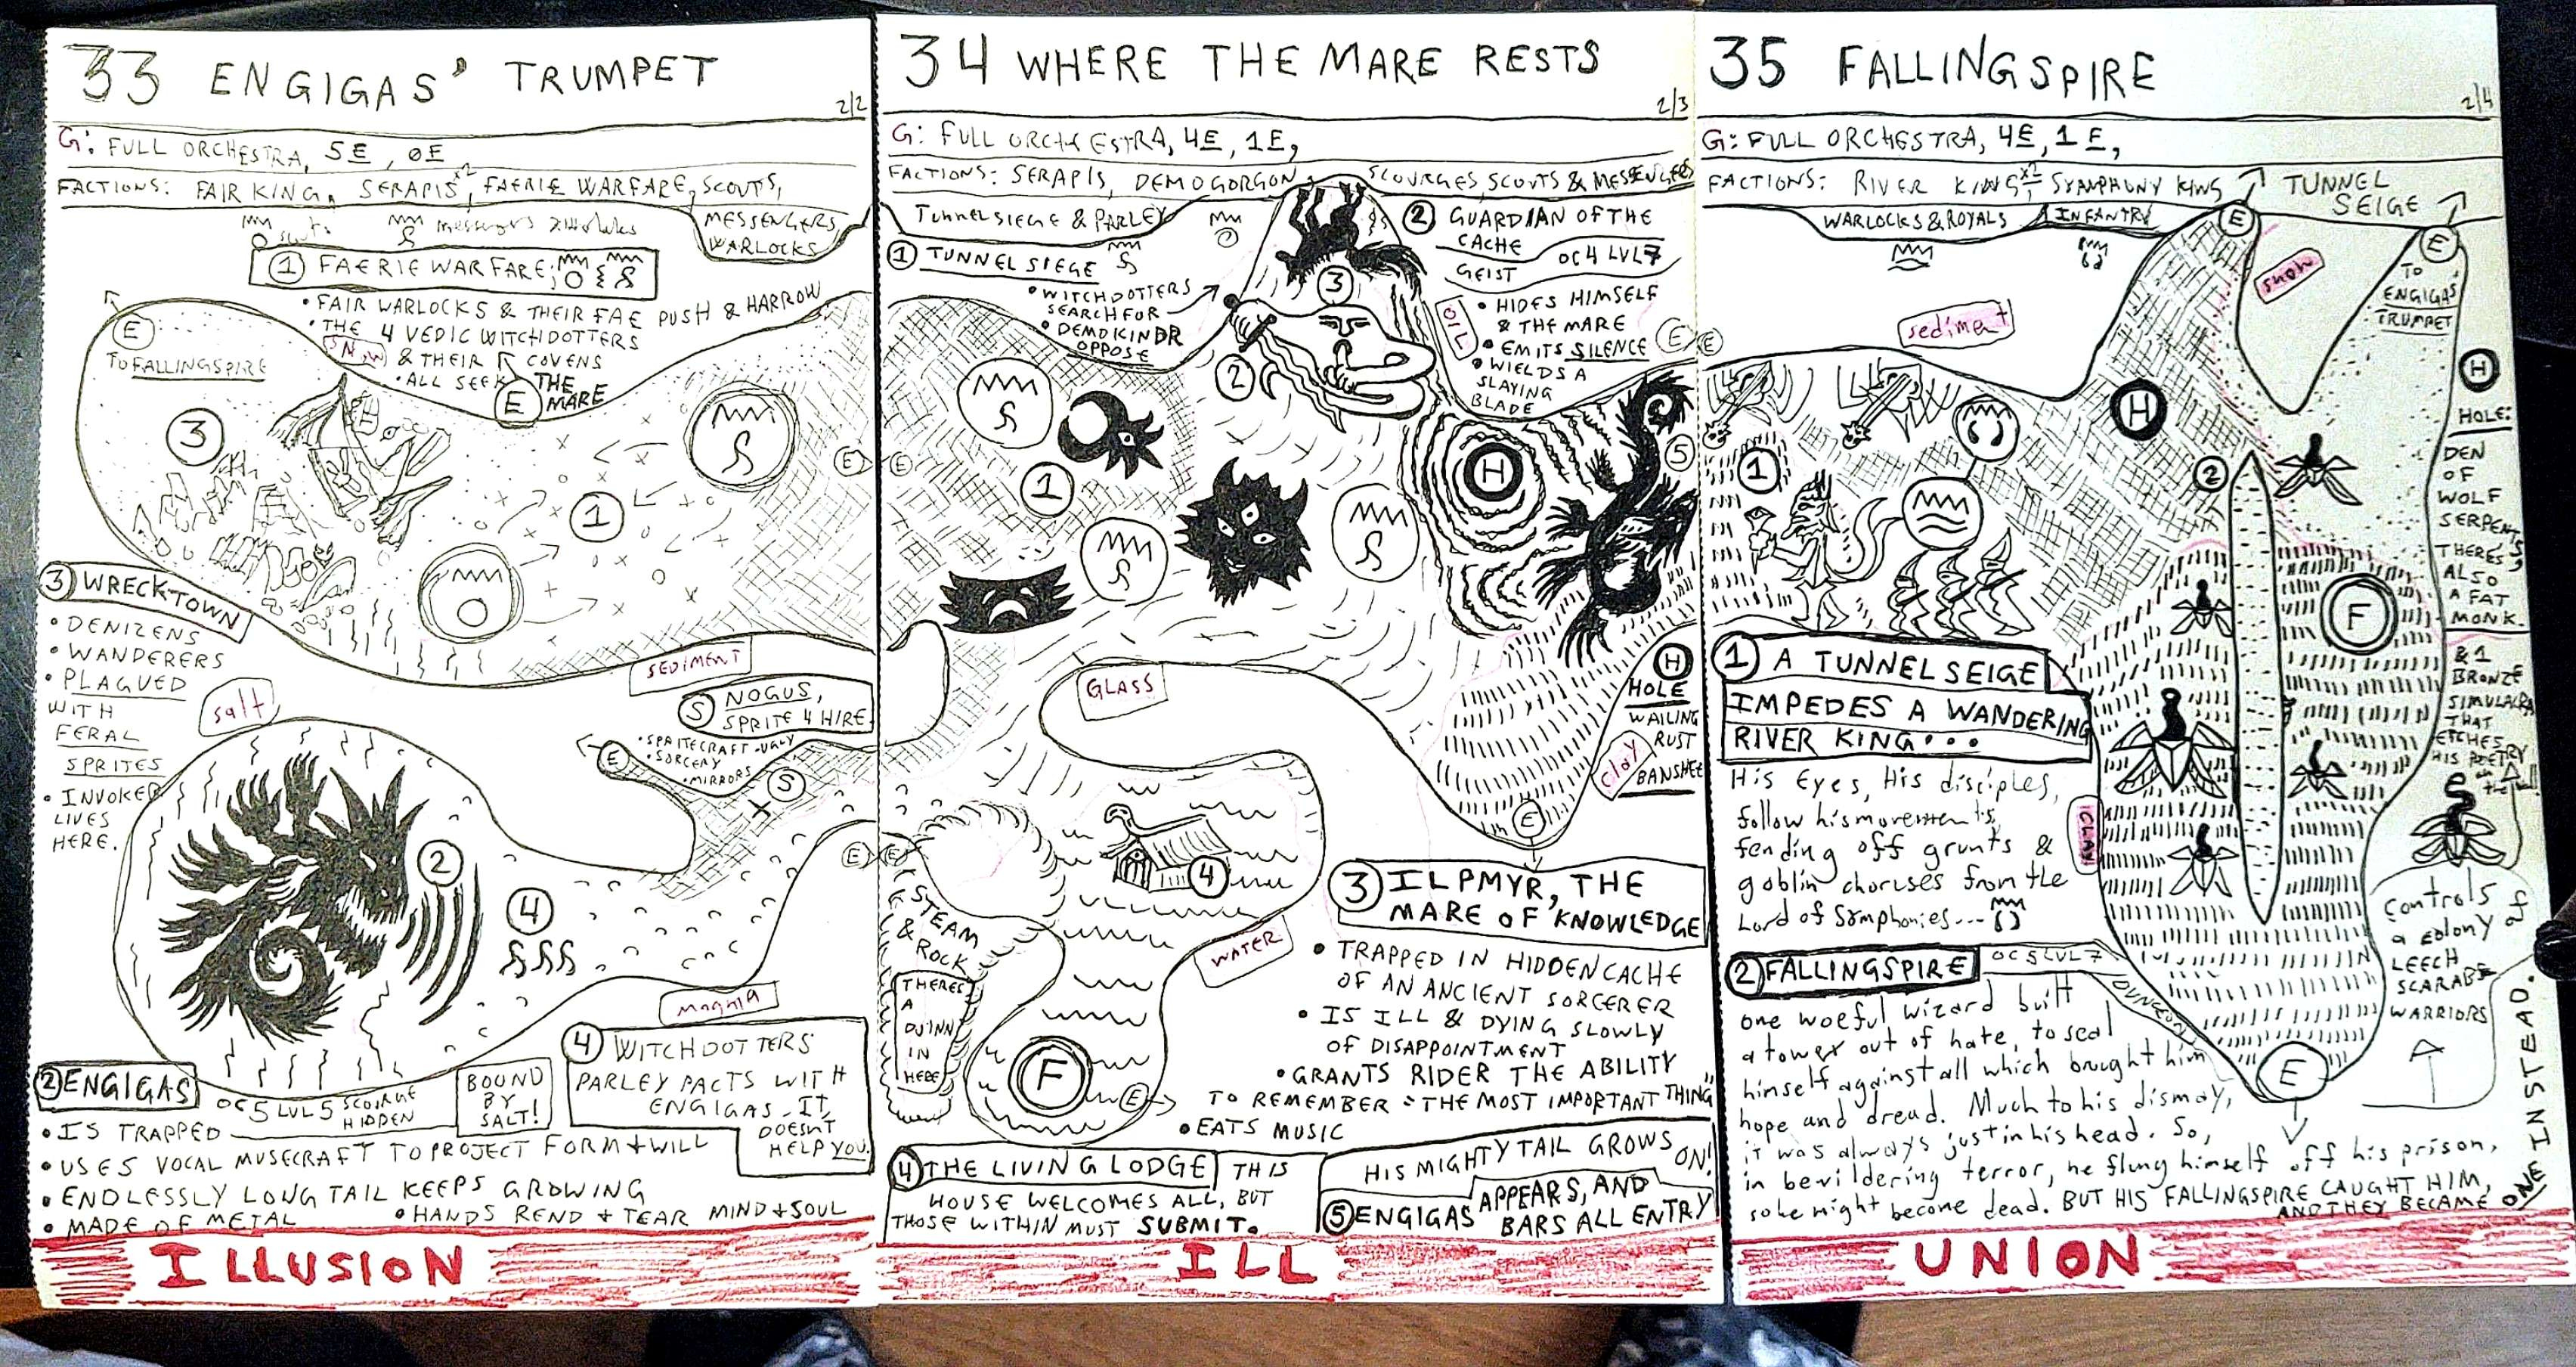 33 ENGIGAS' TRUMPET
2/2
G: FULL ORCHESTRA, 5E, 0E
FACTIONS: FAIR KING, SERAPIS x2, FAERIE WARFARE, SCOUTS,
MESSENGERS,
WARLOCKS
scouts
messengers
warlocks
1 FAERIE WARFARE:
• FAIR WARLOCKS & THEIR FAE PUSH & HARROW
• THE 4 VEDIC WITCHDOTTERS
& THEIR COVENS
• ALL SEEK THE
MARE
SNOW
E
E
TO FALLINGSPIRE
3
1
E
3 WRECKTOWN
• DENIZENS
• WANDERERS
• PLAGUED
WITH
FERAL
SPRITES
• INVOKER
LIVES
HERE.
SEDIMENT
salt
5 NOGUS,
SPRITE 4 HIRE
• SPRITECRAFT-UGLY
• SORCERY
• MIRRORS
E
5
2
4
E
magma
2 ENGIGAS
OC5 LVL5 SCOURGE
HIDDEN
BOUND
BY
SALT!
4 WITCHDOTTERS
PARLEY PACTS WITH
ENGIGAS. IT
DOESN'T
HELP YOU.
• IS TRAPPED
• USES VOCAL MUSECRAFT TO PROJECT FORM & WILL
• ENDLESSLY LONG TAIL KEEPS GROWING
• MADE OF METAL
• HANDS REND & TEAR MIND & SOUL
ILLUSION
34 WHERE THE MARE RESTS
2/3
G: FULL ORCHESTRA, 4E, 1E,
FACTIONS: SERAPIS, DEMOGORGON, SCOURGES, SCOUTS & MESSENGERS
TUNNELSIEGE & PARLEY
1 TUNNELSIEGE
• WITCHDOTTERS
SEARCH FOR
• DEMOKINDR
OPPOSE
2 GUARDIAN OF THE
CACHE
GEIST OC4 LVL7
• HIDES HIMSELF
& THE MARE
• EMITS SILENCE
• WIELDS A
SLAYING
BLADE
OIL
3
2
E
E
1
H
5
GLASS
H
HOLE
WAILING
RUST
BANSHEE
clay
E
4
E
STEAM
& ROCK
THERES
A
DJINN
IN
HERE
WATER
F
E
3 ILPMYR, THE
MARE OF KNOWLEDGE
• TRAPPED IN HIDDEN CACHE
OF AN ANCIENT SORCERER
• IS ILL & DYING SLOWLY
OF DISAPPOINTMENT
• GRANTS RIDER THE ABILITY
TO REMEMBER "THE MOST IMPORTANT THING"
• EATS MUSIC
4 THE LIVING LODGE THIS
HOUSE WELCOMES ALL, BUT
THOSE WITHIN MUST SUBMIT.
HIS MIGHTY TAIL GROWS
ON!
5 ENGIGAS APPEARS, AND
BARS ALL ENTRY
ILL
35 FALLINGSPIRE
2/4
G: FULL ORCHESTRA, 4E, 1E,
FACTIONS: RIVER KING x2, SYMPHONY KING
WARLOCKS & ROYALS
INFANTRY
TUNNEL
SEIGE
E
E
TO
ENGIGAS'
TRUMPET
snow
sediment
E
H
H
HOLE:
DEN
OF
WOLF
SERPENTS,
THERE'S
ALSO
A FAT
MONK.
& 1
BRONZE
SIMULACRA
THAT
ETCHES
HIS POETRY
1
2
F
1 A TUNNELSEIGE
IMPEDES A WANDERING
RIVER KING...
His Eyes, His disciples,
follow his movements,
fending off grunts &
goblin choruses from the
Lord of Symphonies...
CLAY
Controls
a colony of
LEECH
SCARABS
WARRIORS
2 FALLINGSPIRE
OC5 LVL7
DUNGEON
one woeful wizard built
a tower out of hate, to seal
himself against all which brought him
hope and dread. Much to his dismay,
it was always just in his head. So,
in bevildering terror, he flung himself off his prison,
so he might become dead. BUT HIS FALLINGSPIRE CAUGHT HIM,
AND THEY BECAME ONE INSTEAD.
E
UNION